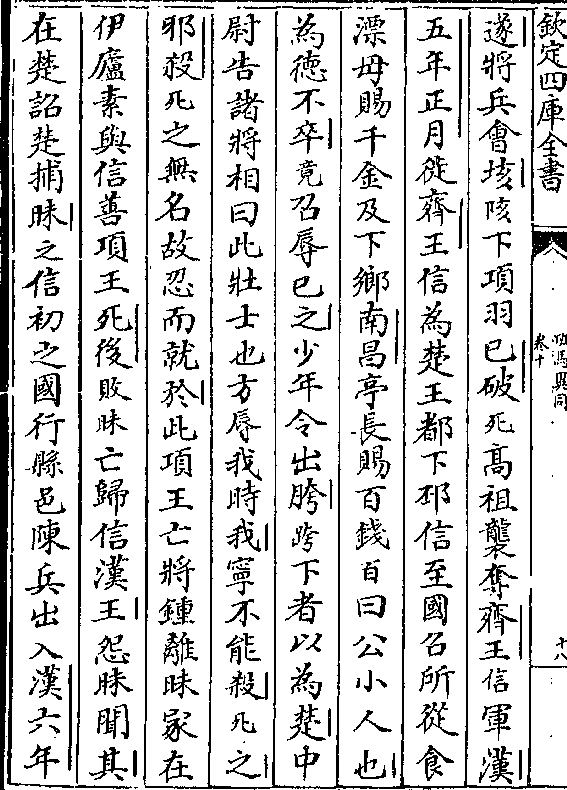 欽定四庫全書
班馬異同
卷十
十八
遂將兵會垓陔下項羽已破死高祖襲奪齊王信軍漢
五年正月徙齊王信為楚王都下邳信至國召所從食
漂母賜千金及下鄉南昌亭長賜百錢百曰公小人也
為德不卒竟召辱已之少年令出胯跨下者以為楚中
尉告諸將相曰此壯士也方辱我時我寧不能殺死之
邪殺死之無名故忍而就於此項王亡將鍾離昧家在
伊廬素與信善項王死後敗昧亡歸信漢王怨昧聞其
在楚詔楚捕昧之信初之國行縣邑陳兵出入漢六年